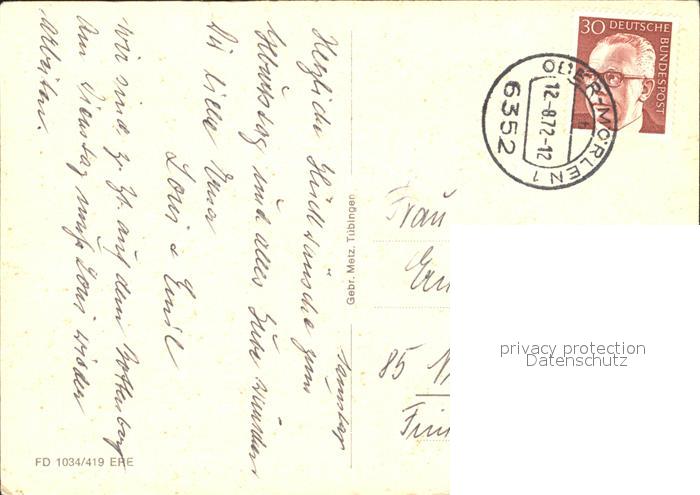 Samstag
Herzliche Glückwünsche zum
Geburtstag und alles Gute wünschen
Dir liebe
Loni & Emil
Wir sind z. Zt. auf dem
Am Dienstag muß Loni wieder
arbeiten.
Gebr. Metz, Tübingen
FD 1034/419 ERE
30 DEUTSCHE BUNDESPOST
OBER-MÖRLEN 1
12.-8.72-12
6352
Frau
85
privacy protection
Datenschutz